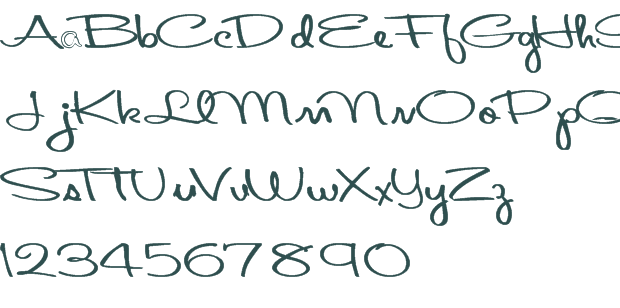 AaBbCcDdEeFfGgHh
JjKkLlMmNnOoPpQ
SsTtUuVvWwXxYyZz
1234567890